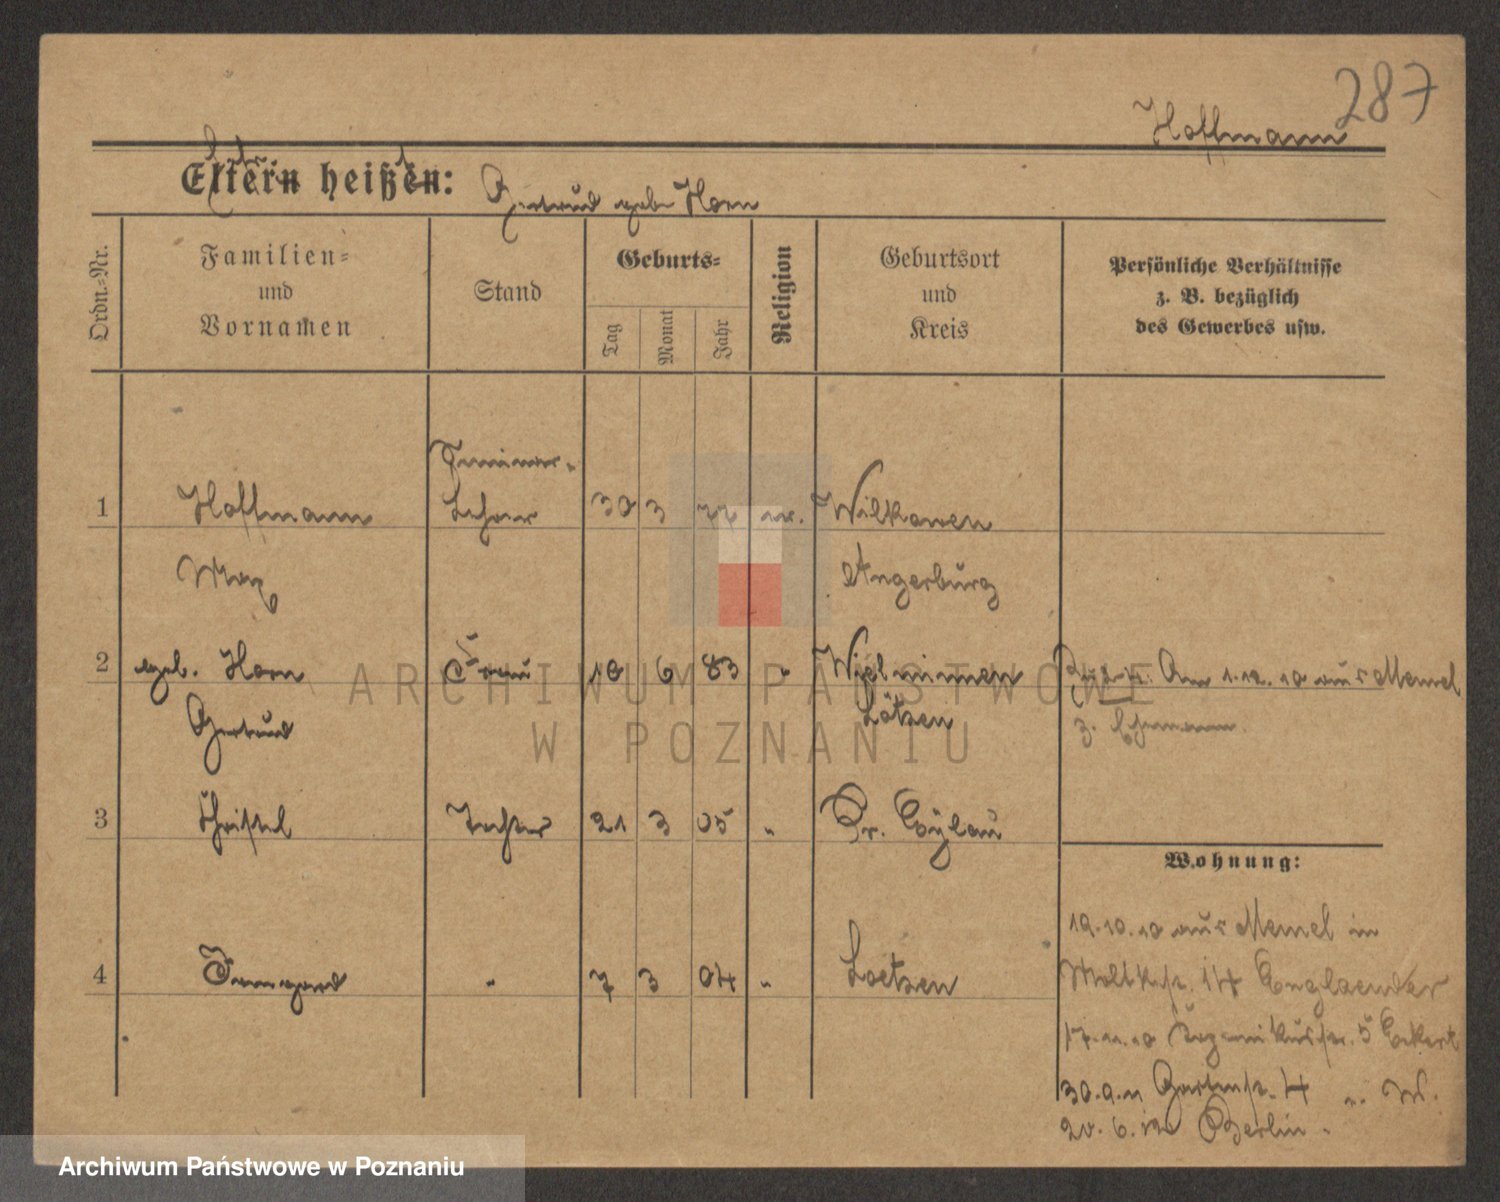 287
Hoffmann
Eltern heißen:
Gertrud geb. Horn
Ordn.-Nr.
Familien-
und
Vornamen
Stand
Geburts-
Tag
Monat
Jahr
Religion
Geburtsort
und
Kreis
Persönliche Verhältnisse
z. B. bezüglich
des Gewerbes usw.
Seminar-
1 Hoffmann Lehrer 30 3 77 ev. Wilkowen
Max Angerburg
2 geb. Horn Frau 10 6 83 " Widminnen Am 1.12.10 aus Memel
Gertrud Lötzen z. Ehemann.
3 Christel Tochter 21 3 05 " Pr. Eylau
Wohnung:
19.10.10 aus Memel in
4 Irmgard " 7 3 04 " Loetzen
Moltkestr. 14 Englaender
17.11.10 5 Eckert
30.9.11 Gartenstr. 4 " W.
20.6.12 Berlin.
ARCHIWUM PAŃSTWOWE
W POZNANIU
Archiwum Państwowe w Poznaniu